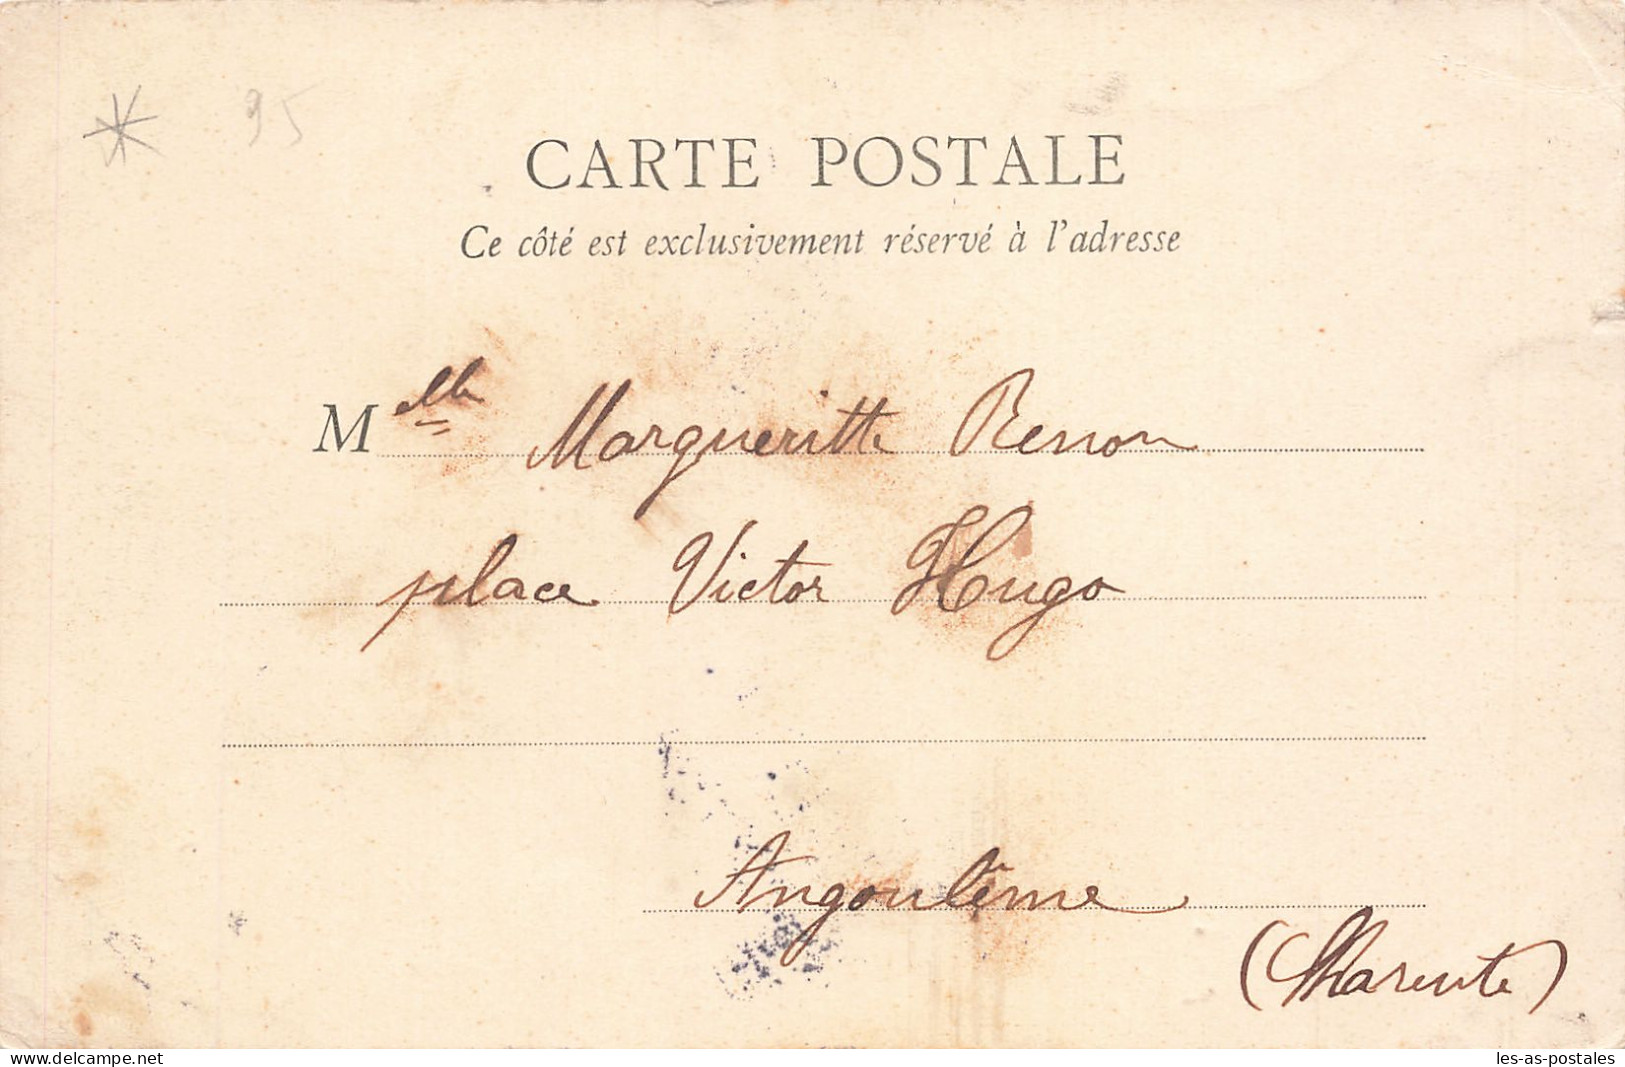 95
CARTE POSTALE
Ce côté est exclusivement réservé à l'adresse
Melle Margueritte Renon
place Victor Hugo
Angoulême
(Charente)
www.delcampe.net
les-as-postales